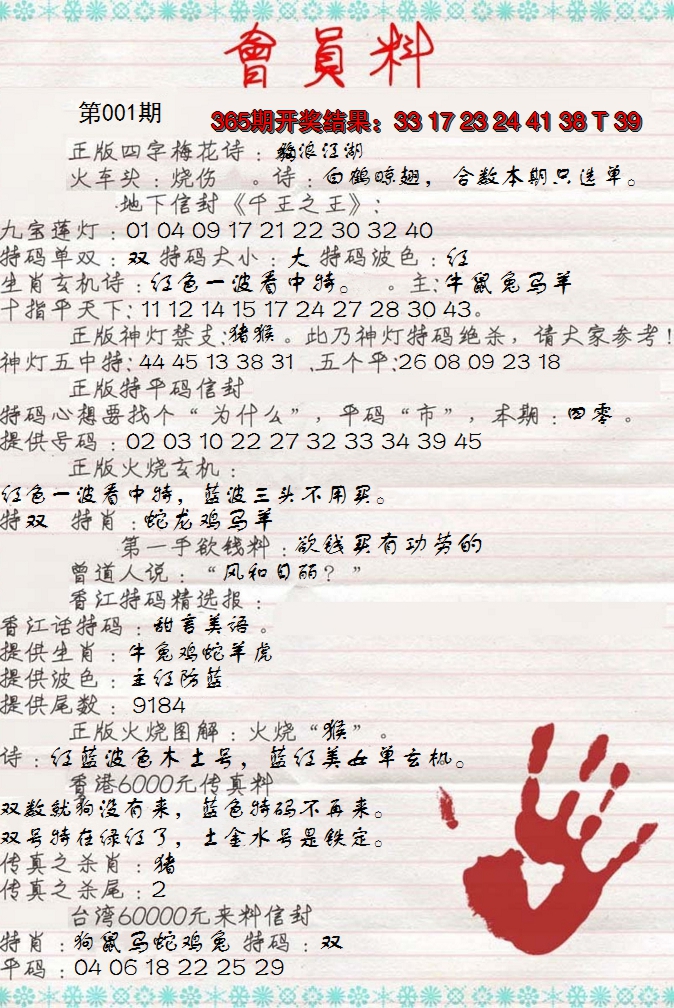 會員料
第001期
365期开奖结果：33 17 23 24 41 38 T 39
正版四字梅花诗：狗浪江湖
火车头：烧伤 。诗：白鹤晾翅，合数本期只选单。
地下信封《千王之王》：
九宝莲灯：01 04 09 17 21 22 30 32 40
特码单双：双 特码大小：大 特码波色：红
生肖玄机诗：红色一波看中特。 。主:牛鼠兔马羊
十指平天下:11 12 14 15 17 24 27 28 30 43。
正版神灯禁支:猪猴。此乃神灯特码绝杀，请大家参考！
神灯五中特:44 45 13 38 31 、五个平:26 08 09 23 18
正版特平码信封
特码心想要找个“为什么”，平码“市”，本期：四零。
提供号码：02 03 10 22 27 32 33 34 39 45
正版火烧玄机：
红色一波看中特，蓝波三头不用买。
特双 特肖：蛇龙鸡马羊
第一手欲钱料：欲钱买有功劳的
曾道人说：“风和日丽？”
香江特码精选报：
香江话特码：甜言美语。
提供生肖：牛兔鸡蛇羊虎
提供波色：主红防蓝
提供尾数：9184
正版火烧图解：火烧“猴”。
诗：红蓝波色木土号，蓝红美女单玄机。
香港6000元传真料
双数就狗没有来，蓝色特码不再来。
双号特在绿红了，土金水号是铁定。
传真之杀肖：猪
传真之杀尾：2
台湾60000元来料信封
特肖：狗鼠马蛇鸡兔 特码：双
平码：04 06 18 22 25 29